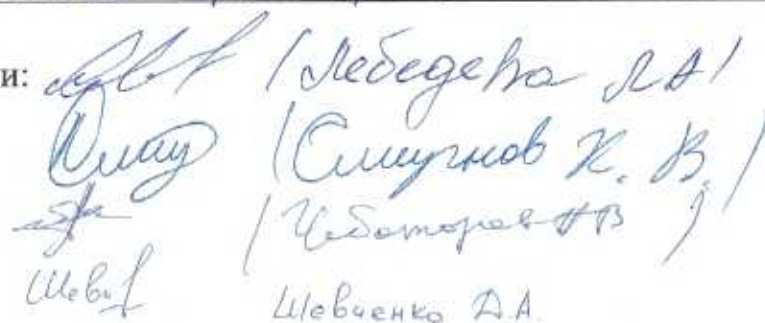 и: /Лебедева Л А/
/Смирнов К. В./
/Чеботарев НВ)
Шевченко Д.А.